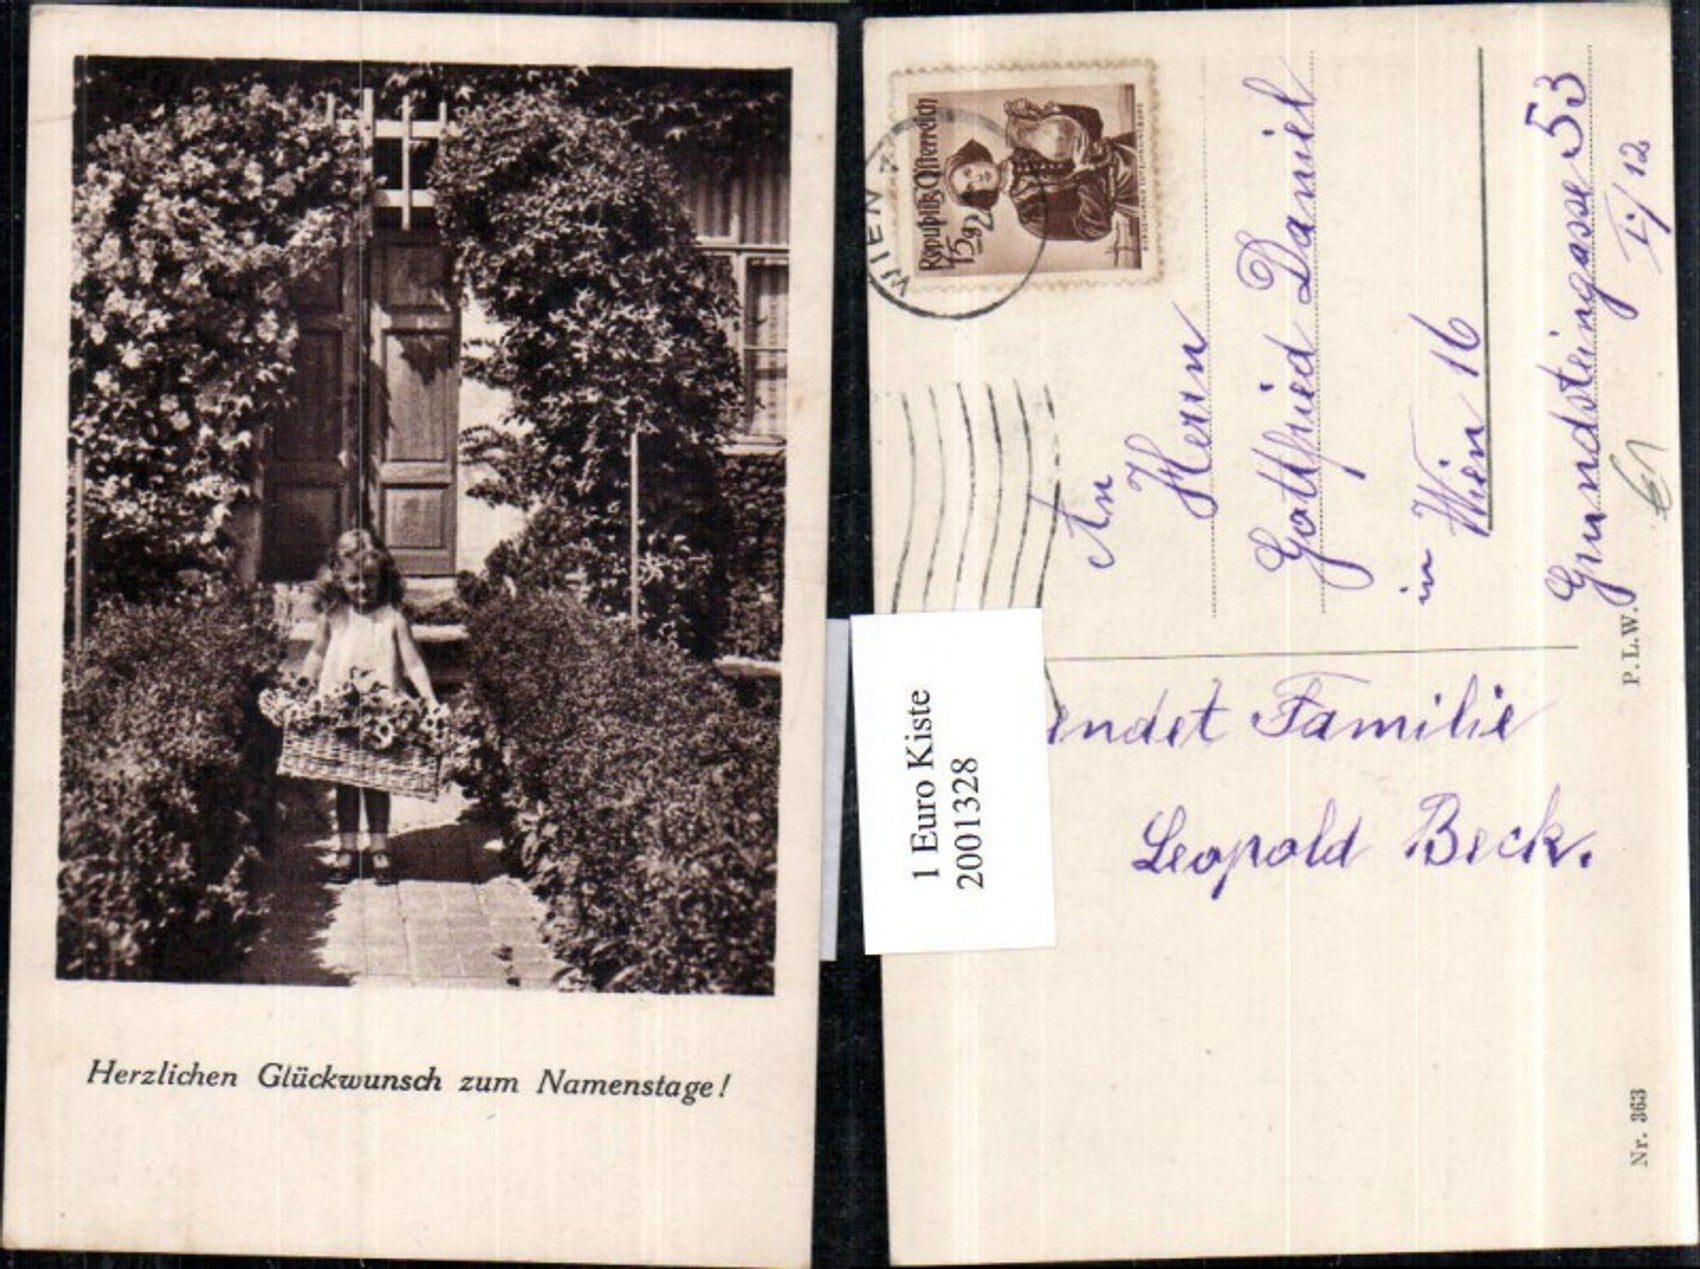 Herzlichen Glückwunsch zum Namenstage!
Republik Österreich
45g
WIEN
An
Herrn
Gottfried Daniel
in Wien 16
Grundsteingasse 53
I./12
P. L. W.
1 Euro Kiste
2001328
endet Familie
Leopold Beck.
Nr. 363